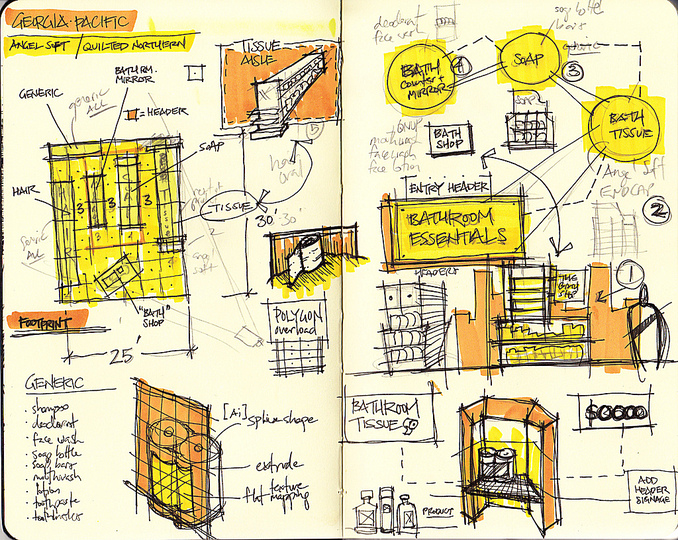 GEORGIA-PACIFIC
ANGEL SOFT / QUILTED NORTHERN
BATH RM.
MIRROR
GENERIC
generic
= HEADER
TISSUE
AISLE
5
SOAP
HAIR
3
3
3
TISSUE
30'
30'
2
angel
soft
"BATH"
SHOP
FOOTPRINT
25'
POLYGON
overload
GENERIC
· shampoo
· deodorant
· face wash
· soap bottle
· soap bars
· mouthwash
· lotion
· toothpaste
· toothbrushes
[Ai] spline shape
extrude
flat texture mapping
deodorant
face wash
soap bottle
generic
BATH
COUNTER +
MIRROR
4
SOAP
3
BATH
TISSUE
SOAP
BATH
SHOP
mouthwash
facewash
face lotion
Angel Soft
ENDCAP
2
ENTRY HEADER
BATHROOM
ESSENTIALS
HEADER
THE
BATH
SHOP
1
BATHROOM
TISSUE
$0000
ADD
HEADER
SIGNAGE
PRODUCT